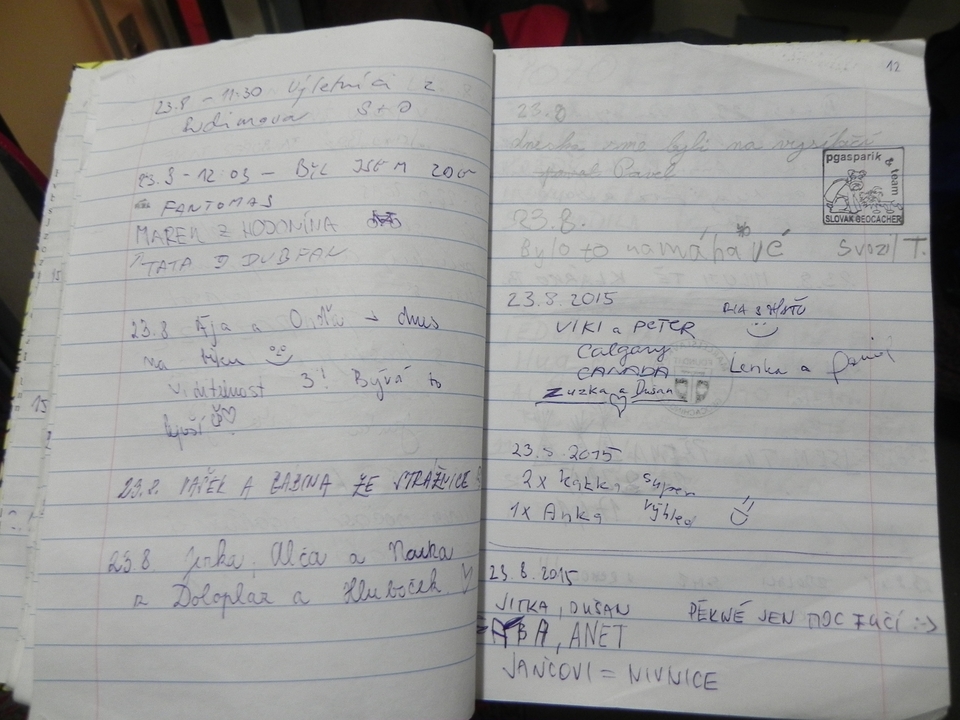 23.8 - 11:30 Výletníci z
Ludimova S + D
23.8 - 12:03 - BYL JSEM ZDE
FANTOMAS
MAREK Z HODONÍNA
TATA D DUBFAN
23.8 Ája a Ondra → dnes
na triku
Viditelnost 3! Bývá to
lepší
23.8. PAŠEK A BABINA ZE STRÁŽNICE
23.8 Jirka, Alča a Naďka
z Doloplaz a Hluboček
12
23.8
dneska sme byli na vysílači
Pavel
pgasparik & team
SLOVAK GEOCACHER
23.8.
Bylo to namáhavé Svozil T.
23.8.2015
VIKI a PETER
Calgary
CANADA
Zuzka a Dušan
Lenka a
23.8.2015
2x Katka super
1x Anka výhled
23.8.2015
JITKA, DUŠAN PĚKNÉ JEN MOC FUČÍ :->
BA, ANET
JANČOVI = NIVNICE